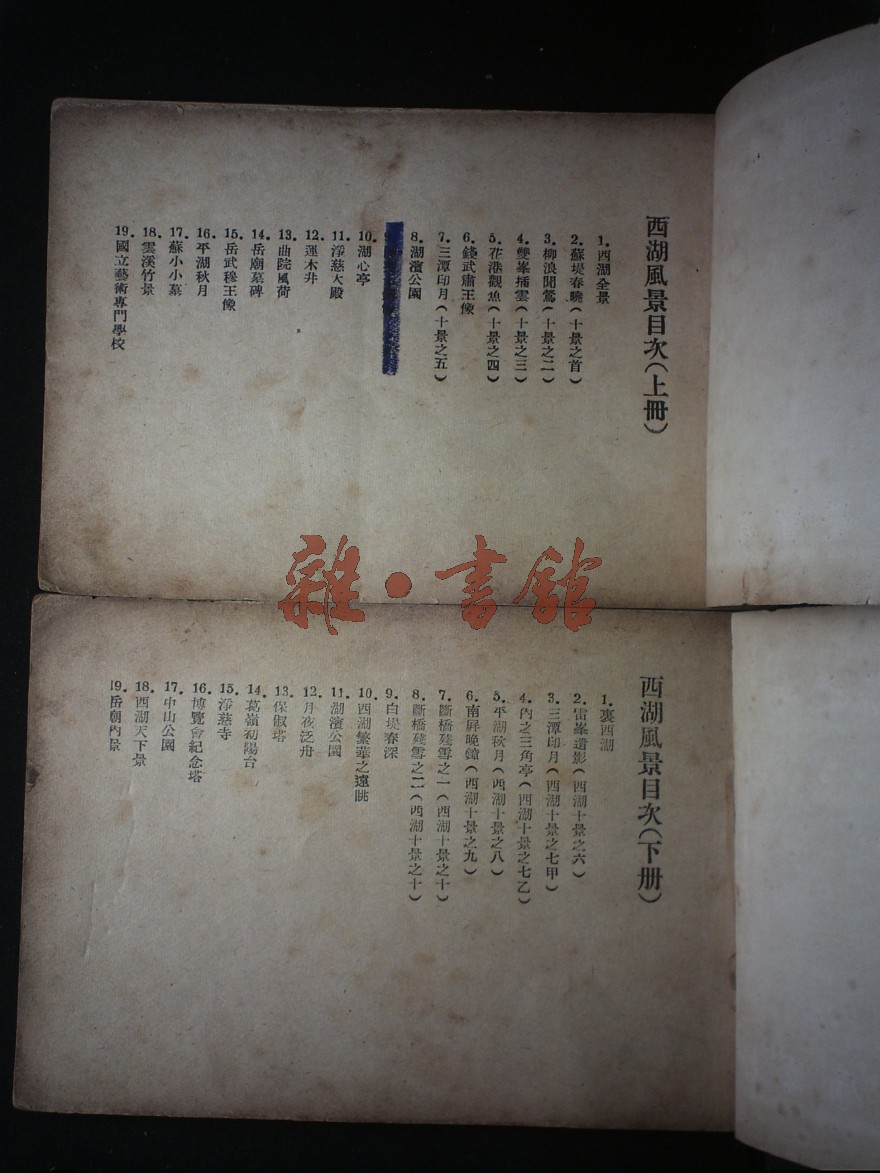 西湖風景目次(上冊)
1.西湖全景
2.蘇堤春曉(十景之首)
3.柳浪聞鶯(十景之二)
4.雙峯插雲(十景之三)
5.花港觀魚(十景之四)
6.錢武肅王像
7.三潭印月(十景之五)
8.湖濱公園
9.
10.湖心亭
11.淨慈大殿
12.運木井
13.曲院風荷
14.岳廟墓碑
15.岳武穆王像
16.平湖秋月
17.蘇小小墓
18.雲溪竹景
19.國立藝術專門學校
雜·書館
西湖風景目次(下册)
1.裏西湖
2.雷峯遺影(西湖十景之六)
3.三潭印月(西湖十景之七甲)
4.內之三角亭(西湖十景之七乙)
5.平湖秋月(西湖十景之八)
6.南屏晚鐘(西湖十景之九)
7.斷橋殘雪之一(西湖十景之十)
8.斷橋殘雪之二(西湖十景之十)
9.白堤春深
10.西湖繁華之遠眺
11.湖濱公園
12.月夜泛舟
13.保俶塔
14.葛嶺初陽台
15.淨慈寺
16.博覽會紀念塔
17.中山公園
18.西湖天下景
19.岳廟內景